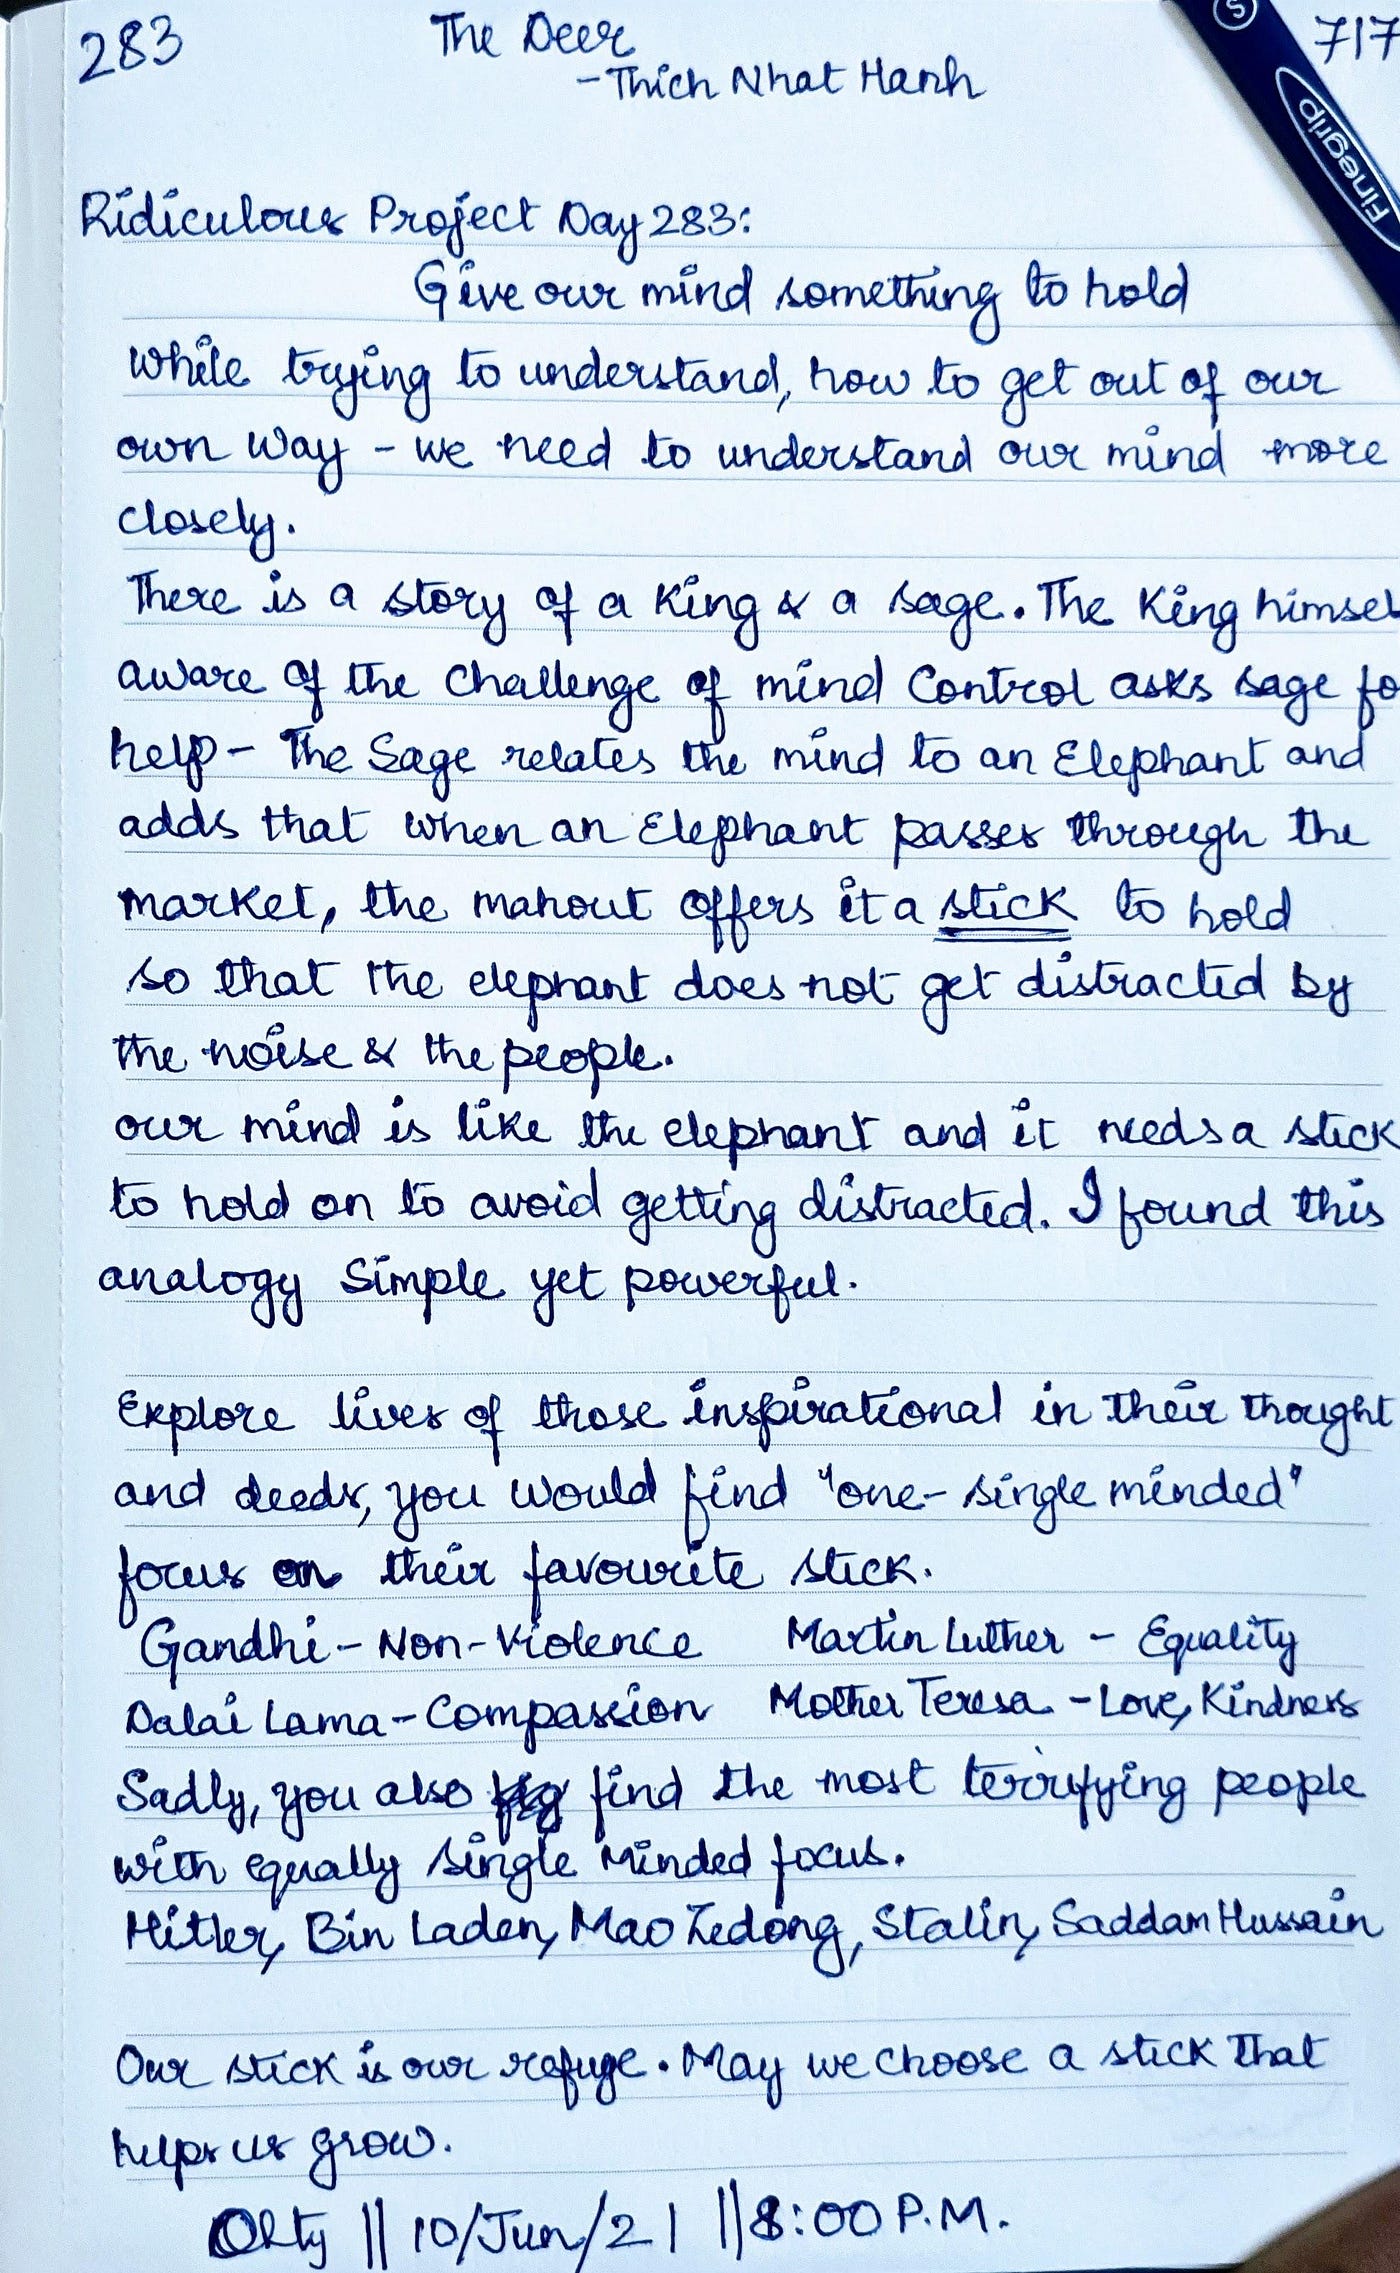 283 The Deer 717
-Thich Nhat Hanh
S
Finegrip
Ridiculous Project Day 283:
Give our mind something to hold
while trying to understand, how to get out of our
own way - we need to understand our mind more
closely.
There is a story of a King & a sage. The King himsel
aware of the challenge of mind control asks sage fo
help - The Sage relates the mind to an Elephant and
adds that when an Elephant passes through the
market, the mahout offers it a stick to hold
so that the elephant does not get distracted by
the noise & the people.
our mind is like the elephant and it needs a stick
to hold on to avoid getting distracted. I found this
analogy Simple yet powerful.
Explore lives of those inspirational in their thought
and deeds, you would find "one-single minded"
focus on their favourite stick.
Gandhi - Non-Violence Martin Luther - Equality
Dalai Lama - Compassion Mother Teresa - Love, Kindness
Sadly, you also find the most terrifying people
with equally single minded focus.
Hitler, Bin Laden, Mao Zedong, Stalin, Saddam Hussain
Our stick is our refuge. May we choose a stick that
helps us grow.
|| 10/Jun/21 || 8:00 P.M.